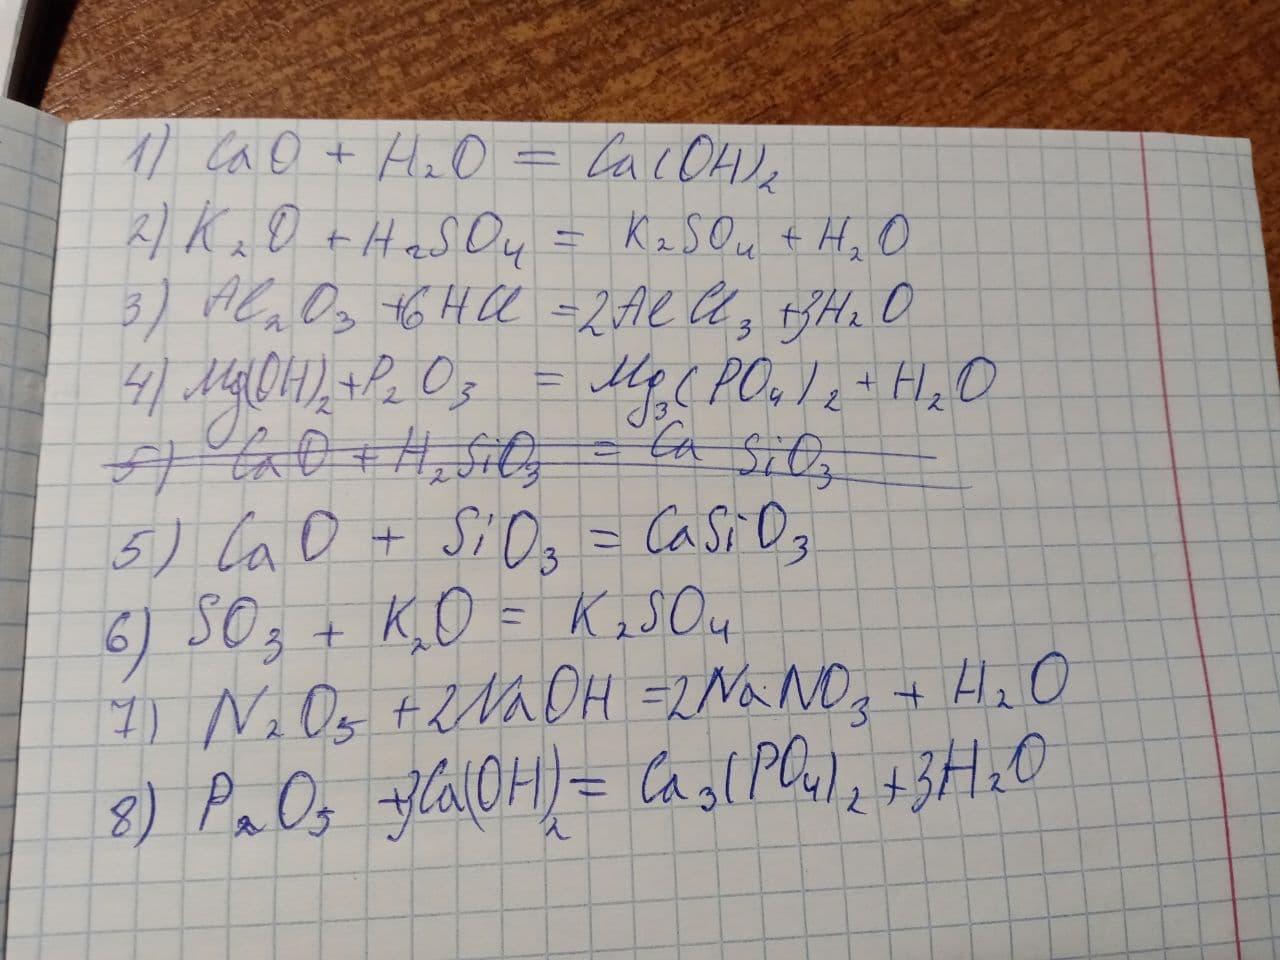 1) CaO + H₂O = Ca(OH)₂
2) K₂O + H₂SO₄ = K₂SO₄ + H₂O
3) Al₂O₃ + 6HCl = 2AlCl₃ + 3H₂O
4) Mg(OH)₂ + P₂O₃ = Mg₃(PO₄)₂ + H₂O
5) CaO + H₂SiO₃ = Ca SiO₃
5) CaO + SiO₃ = CaSiO₃
6) SO₃ + K₂O = K₂SO₄
7) N₂O₅ + 2NaOH = 2NaNO₃ + H₂O
8) P₂O₅ + 3Ca(OH)₂ = Ca₃(PO₄)₂ + 3H₂O